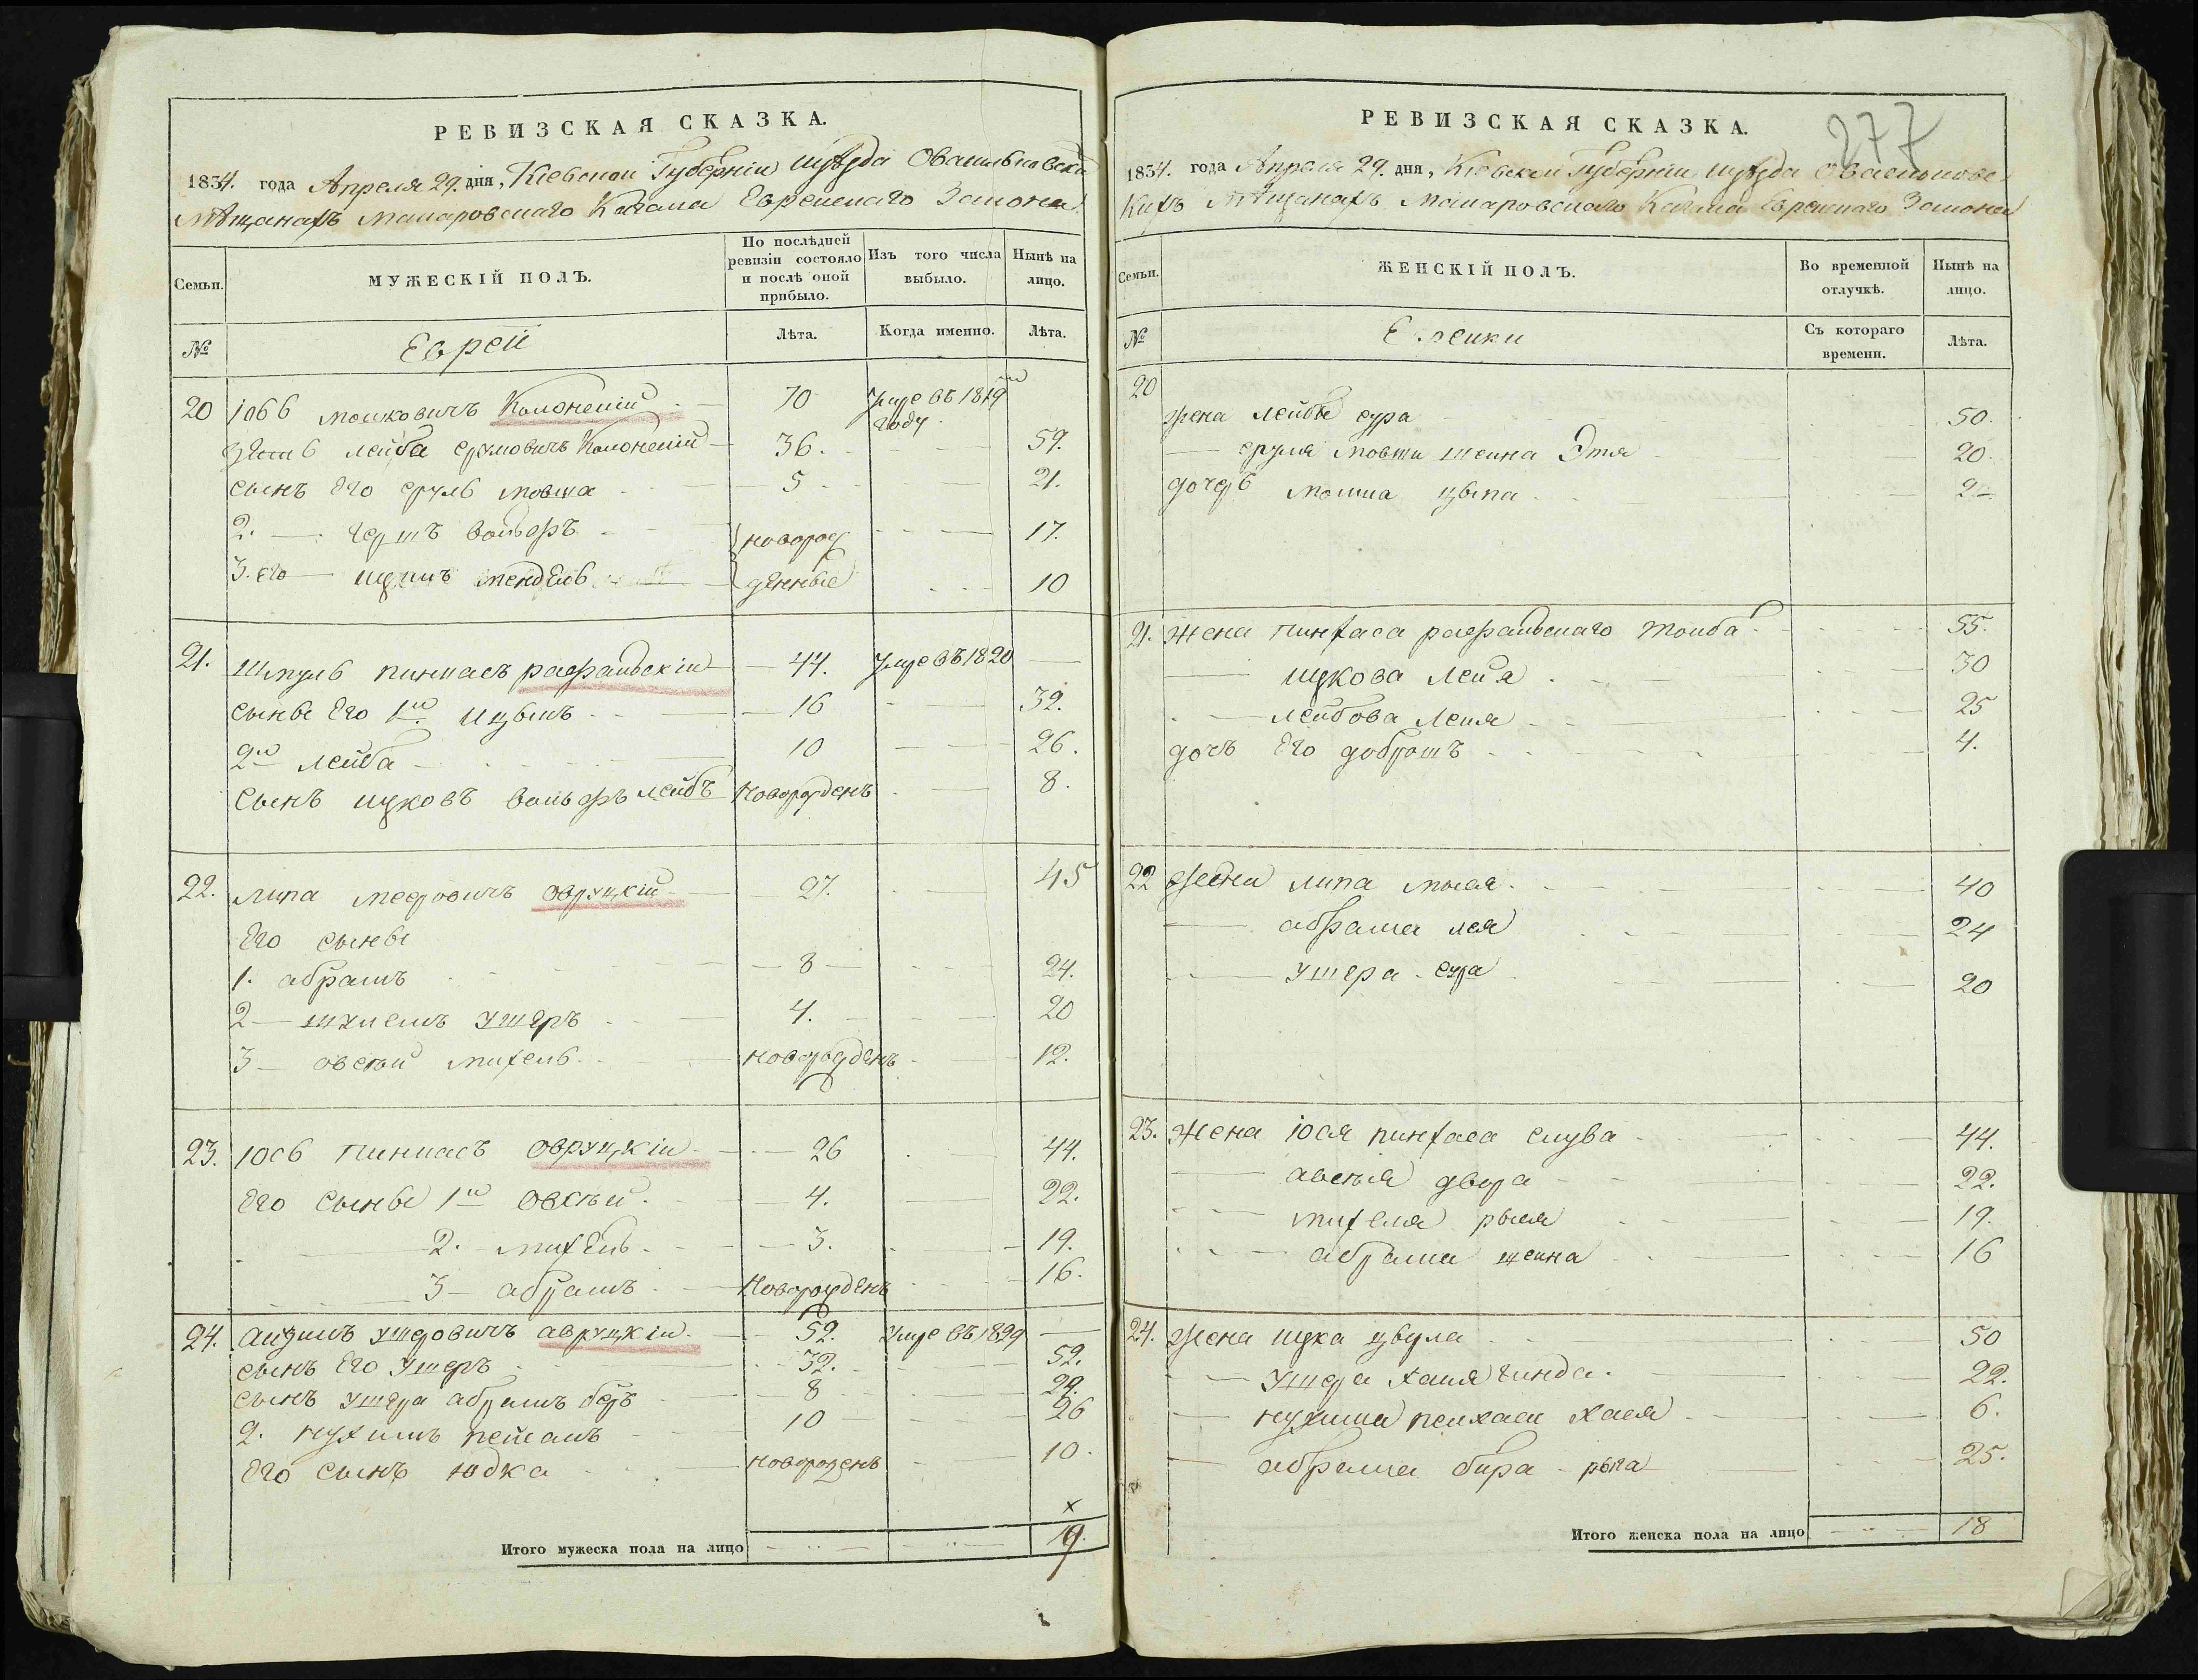 РЕВИЗСКАЯ СКАЗКА.
1834. года Апреля 29. дня, Кіевской Губерніи уѣзда
мѣщанахъ Макаровскаго Кагала Еврейскаго Закона
Семьи. МУЖЕСКІЙ ПОЛЪ. По послѣдней ревизіи состояло и послѣ оной прибыло. Изъ того числа выбыло. Нынѣ на лицо.
№ Евреи Лѣта. Когда именно. Лѣта.
20 мошковичъ 70 Умре въ 1819 году
лейба срулович 36. 59.
сынъ Его сруль мовша 5 21.
2. — гершъ вольфъ новорож 17.
3. его — мендель денные 10
21. Шмуль пинхасъ рафальскій 44. Умре въ 1820
сыны Его 1й ицыкъ 16 32.
2й лейба 10 26.
Сынъ ицковъ вольфъ лейбъ Новорожденъ 8.
22. липа мееровичъ овруцкій 27. 45
Его сыны
1. абрамъ 8 24.
2 — ушеръ 4. 20
3 — овсей михель новорожденъ 12.
23. іось пинхасъ овруцкій 26 44.
Его сыны 1й овсей 4. 22.
2. михель 3. 19.
3 — абрамъ Новорожденъ 16.
24. айзикъ ушеровичъ авруцкій 52. Умре въ 1829
сынъ Его Ушеръ 32. 52.
сынъ ушера абрамъ беръ 8 29.
2. нухимъ 10 26
Его сынъ юдка новорожденъ 10.
Итого мужеска пола на лицо 19.
277
РЕВИЗСКАЯ СКАЗКА.
1834. года Апреля 29. дня, Кіевской Губерніи уѣзда
кихъ мѣщанахъ Макаровскаго Кагала Еврейскаго Закона
Семьи. ЖЕНСКІЙ ПОЛЪ. Во временной отлучкѣ. Нынѣ на лицо.
№ Еврейки Съ котораго времени. Лѣта.
20
жена лейбы сура 50.
— сруля мовши шейна Этя 20.
дочь цыпа
21. Жена пинхаса рафальскаго тойба 55.
— ицкова Лея 30
— лейбова Лея 25
дочь Его добрышъ 4.
22 жена липа 40
— абрама лея 24
— Ушера сура 20
23. Жена іося пинхаса слува 44.
— авсѣя двера 22.
— михеля рыся 19.
— абрама шейна 16
24. жена ицка цвуля 50
— Ушера хая гинда 22.
— нухима хася 6.
— абрама бира 25.
Итого женска пола на лицо 18